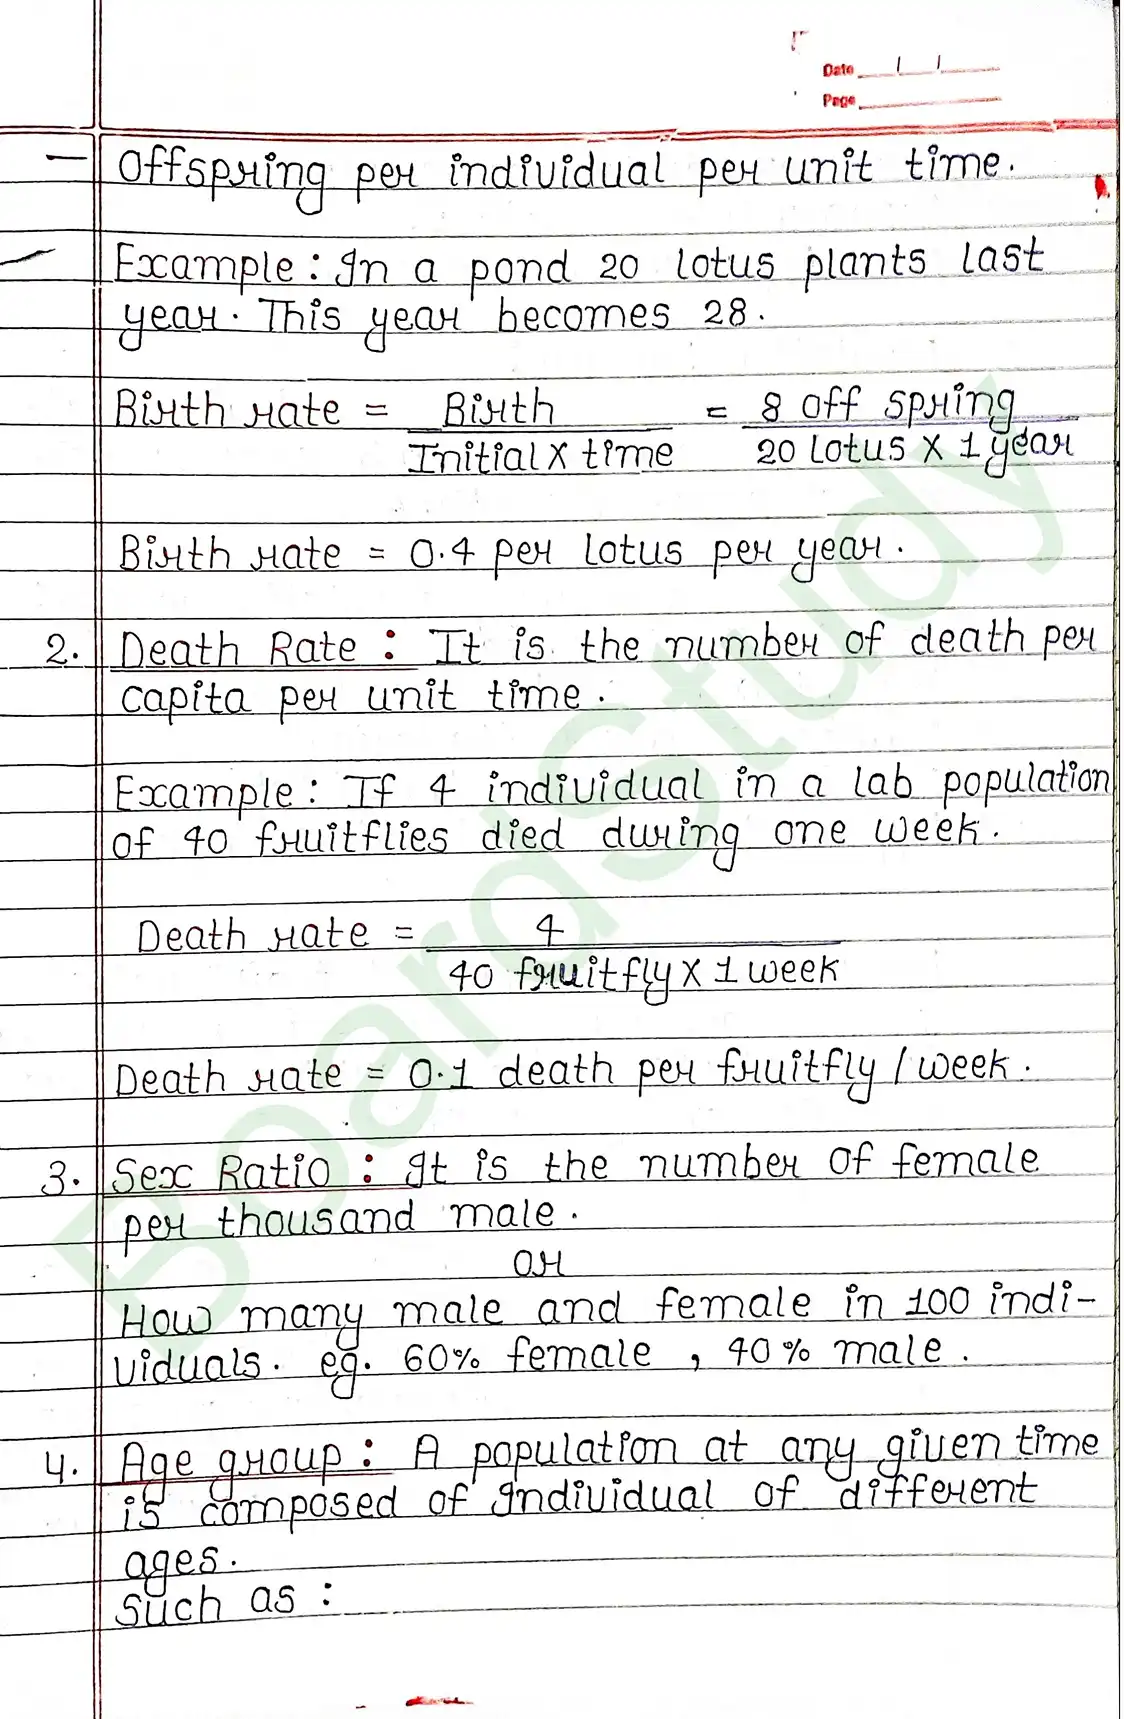 Date / /
Page
— Offspring per individual per unit time.
Example : In a pond 20 lotus plants last
year. This year becomes 28.
Birth rate = Birth / Initial X time = 8 off spring / 20 Lotus X 1 year
Birth rate = 0.4 per lotus per year.
2. Death Rate : It is the number of death per
capita per unit time.
Example : If 4 individual in a lab population
of 40 fruitflies died during one week.
Death rate = 4 / 40 fruitfly X 1 week
Death rate = 0.1 death per fruitfly / week.
3. Sex Ratio : It is the number of female
per thousand male.
or
How many male and female in 100 indi-
viduals. eg. 60% female , 40% male.
4. Age group : A population at any given time
is composed of Individual of different
ages.
Such as :
BoardStudy